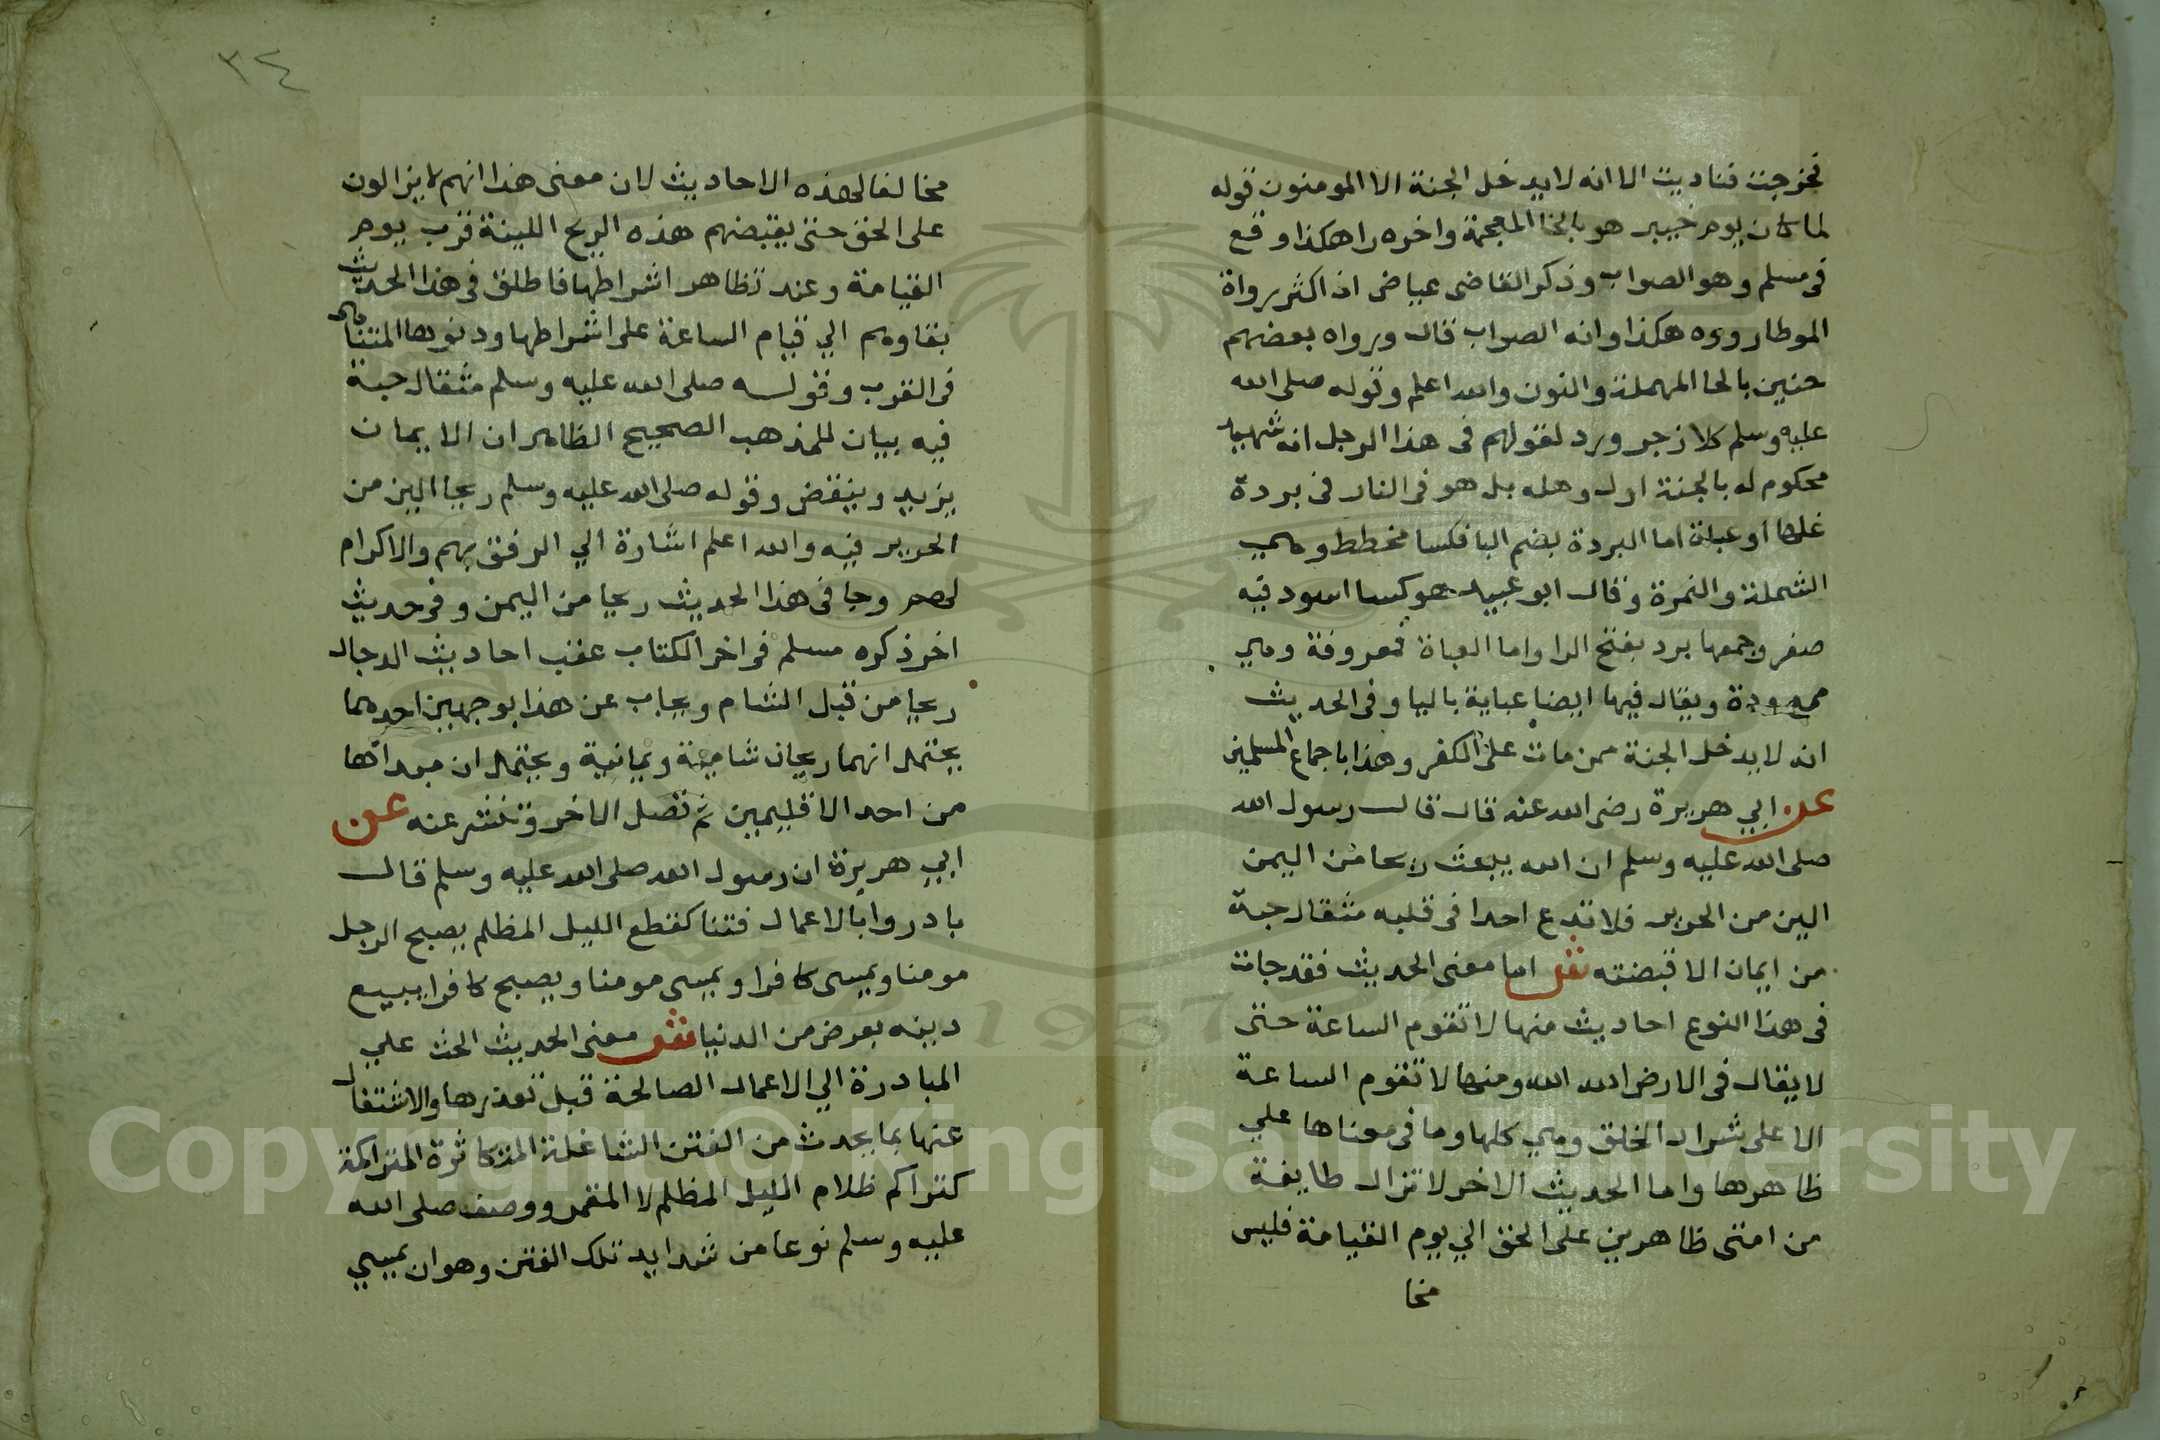 فخرجت فناديت الا انه لا يدخل الجنة الا المومنون قوله
لما كان يوم خيبر هو بالخا المعجمة واخره را هكذا وقع
في مسلم وهو الصواب وذكر القاضي عياض ان اكثر رواة
الموطا رووه هكذا وانه الصواب قال ورواه بعضهم
حنين بالحا المهملة والنون والله اعلم وقوله صلى الله
عليه وسلم كلا زجر ورد لقولهم في هذا الرجل انه شهيد
محكوم له بالجنة اول وهلة بل هو في النار في بردة
غلها او عباة اما البردة بضم البا فكسا مخطط وهي
الشملة والنمرة وقال ابو عبيد هو كسا اسود فيه
صفر وجمعها برد بفتح الرا واما العباة فمعروفة وهي
ممدودة ويقال فيها ايضا عباية باليا وفي الحديث
انه لا يدخل الجنة ممن مات على الكفر وهذا باجماع المسلمين
عن ابي هريرة رضى الله عنه قال قال رسول الله
صلى الله عليه وسلم ان الله يبعث ريحا من اليمن
الين من الحرير فلا تدع احدا في قلبه مثقال حبة
من ايمان الا قبضته اما معنى الحديث فقد جات
في هذا النوع احاديث منها لا تقوم الساعة حتى
لا يقال في الارض الله الله ومنها لا تقوم الساعة
الا على شرار الخلق وهي كلها وما في معناها علي
ظاهرها واما الحديث الاخر لا تزال طايفة
من امتى ظاهرين على الحق الي يوم القيامة فليس
مخا
٣٤
مخالفا لهذه الاحاديث لان معنى هذا انهم لا يزالون
على الحق حتى يقبضهم هذه الريح اللينة قرب يوم
القيامة وعند تظاهر اشراطها فاطلق في هذا الحديث
بقاوهم الي قيام الساعة على اشراطها ودنوها المتناهي
في القرب وقوله صلى الله عليه وسلم مثقال حبة
فيه بيان للمذهب الصحيح الظاهر ان الايمان
يزيد وينقض وقوله صلى الله عليه وسلم ريحا الين من
الحرير فيه والله اعلم اشارة الي الرفق بهم والاكرام
لهم وجا في هذا الحديث ريحا من اليمن وفي حديث
اخر ذكره مسلم في اخر الكتاب عقب احاديث الدجال
ريحا من قبل الشام ويجاب عن هذا بوجهين احدهما
يحتمل انهما ريحان شامية ويمانية ويحتمل ان مبداها
من احد الاقليمين ثم تصل الاخر وتنشر عنه عن
ابي هريرة ان رسول الله صلى الله عليه وسلم قال
بادروا بالاعمال فتنا كقطع الليل المظلم يصبح الرجل
مومنا ويمسى كافرا ويمسى مومنا ويصبح كافرا يبيع
دينه بعرض من الدنيا معنى الحديث الحث علي
المبادرة الي الاعمال الصالحة قبل تعذرها والاشتغال
عنها بما يحدث من الفتن الشاغلة المتكاثرة المتراكمة
كتراكم ظلام الليل المظلم لا المقمر ووصف صلى الله
عليه وسلم نوعا من شدايد تلك الفتن وهو ان يمسي
1957
Copyright © King Saud University